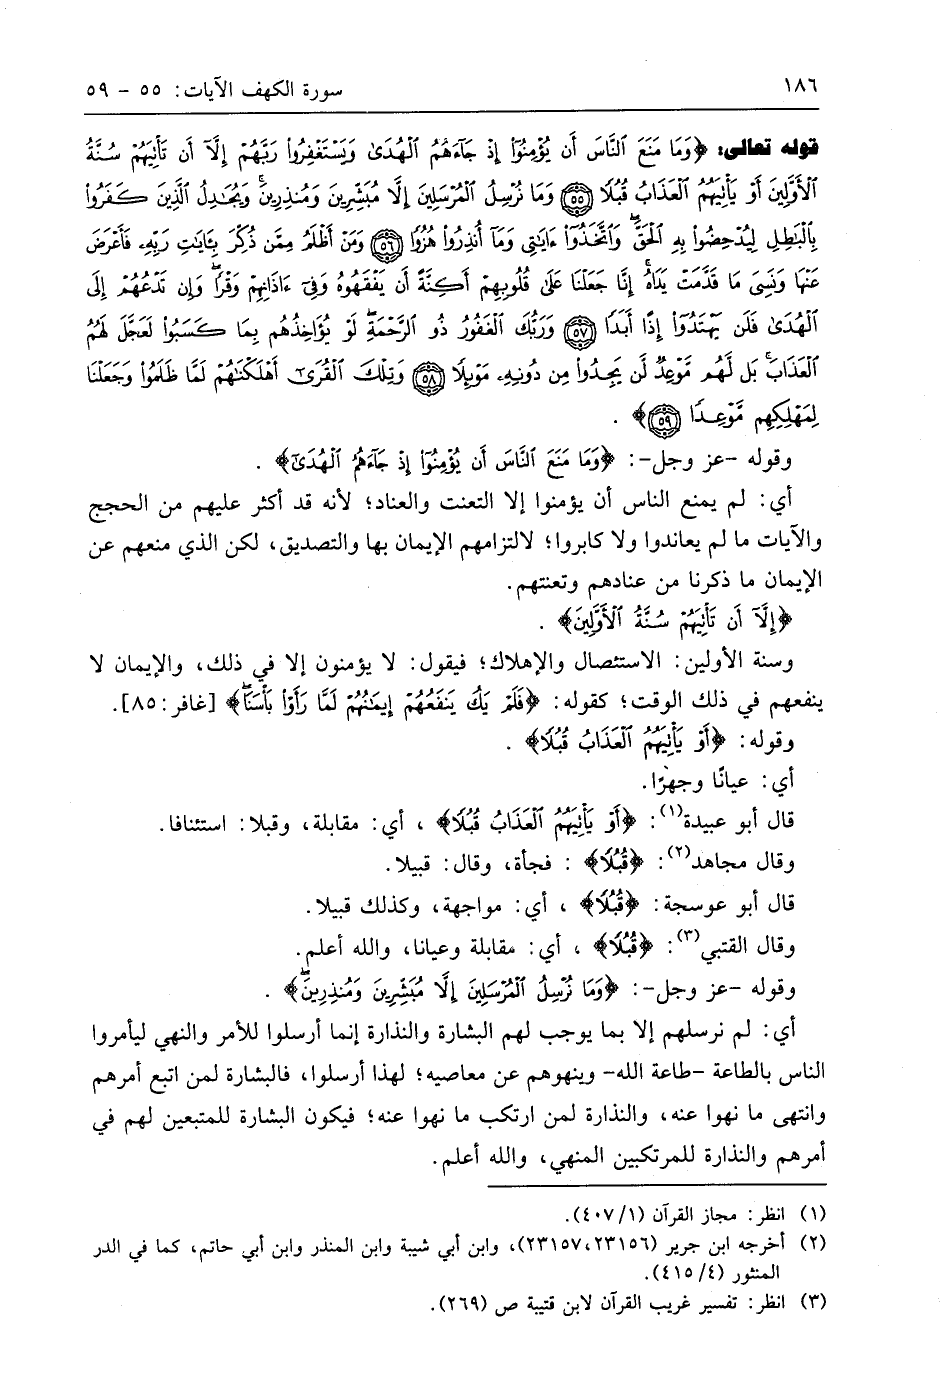 ١٨٦ سورة الكهف الآيات: ٥٥ - ٥٩
قوله تعالى: ﴿وَمَا مَنَعَ ٱلنَّاسَ أَن يُؤْمِنُوٓا۟ إِذْ جَآءَهُمُ ٱلْهُدَىٰ وَيَسْتَغْفِرُوا۟ رَبَّهُمْ إِلَّآ أَن تَأْتِيَهُمْ سُنَّةُ
ٱلْأَوَّلِينَ أَوْ يَأْتِيَهُمُ ٱلْعَذَابُ قُبُلًا ﴿٥٥﴾ وَمَا نُرْسِلُ ٱلْمُرْسَلِينَ إِلَّا مُبَشِّرِينَ وَمُنذِرِينَ ۚ وَيُجَٰدِلُ ٱلَّذِينَ كَفَرُوا۟
بِٱلْبَٰطِلِ لِيُدْحِضُوا۟ بِهِ ٱلْحَقَّ ۖ وَٱتَّخَذُوٓا۟ ءَايَٰتِى وَمَآ أُنذِرُوا۟ هُزُوًا ﴿٥٦﴾ وَمَنْ أَظْلَمُ مِمَّن ذُكِّرَ بِـَٔايَٰتِ رَبِّهِۦ فَأَعْرَضَ
عَنْهَا وَنَسِىَ مَا قَدَّمَتْ يَدَاهُ ۚ إِنَّا جَعَلْنَا عَلَىٰ قُلُوبِهِمْ أَكِنَّةً أَن يَفْقَهُوهُ وَفِىٓ ءَاذَانِهِمْ وَقْرًا ۖ وَإِن تَدْعُهُمْ إِلَى
ٱلْهُدَىٰ فَلَن يَهْتَدُوٓا۟ إِذًا أَبَدًا ﴿٥٧﴾ وَرَبُّكَ ٱلْغَفُورُ ذُو ٱلرَّحْمَةِ ۖ لَوْ يُؤَاخِذُهُم بِمَا كَسَبُوا۟ لَعَجَّلَ لَهُمُ
ٱلْعَذَابَ ۚ بَل لَّهُم مَّوْعِدٌ لَّن يَجِدُوا۟ مِن دُونِهِۦ مَوْئِلًا ﴿٥٨﴾ وَتِلْكَ ٱلْقُرَىٰٓ أَهْلَكْنَٰهُمْ لَمَّا ظَلَمُوا۟ وَجَعَلْنَا
لِمَهْلِكِهِم مَّوْعِدًا ﴿٥٩﴾﴾ .
وقوله -عز وجل-: ﴿وَمَا مَنَعَ ٱلنَّاسَ أَن يُؤْمِنُوٓا۟ إِذْ جَآءَهُمُ ٱلْهُدَىٰٓ﴾ .
أي: لم يمنع الناس أن يؤمنوا إلا التعنت والعناد؛ لأنه قد أكثر عليهم من الحجج
والآيات ما لم يعاندوا ولا كابروا؛ لالتزامهم الإيمان بها والتصديق، لكن الذي منعهم عن
الإيمان ما ذكرنا من عنادهم وتعنتهم.
﴿إِلَّآ أَن تَأْتِيَهُمْ سُنَّةُ ٱلْأَوَّلِينَ﴾ .
وسنة الأولين: الاستئصال والإهلاك؛ فيقول: لا يؤمنون إلا في ذلك، والإيمان لا
ينفعهم في ذلك الوقت؛ كقوله: ﴿فَلَمْ يَكُ يَنفَعُهُمْ إِيمَٰنُهُمْ لَمَّا رَأَوْا۟ بَأْسَنَا ۖ﴾ [غافر: ٨٥].
وقوله: ﴿أَوْ يَأْتِيَهُمُ ٱلْعَذَابُ قُبُلًا﴾ .
أي: عيانًا وجهرًا.
قال أبو عبيدة(١): ﴿أَوْ يَأْتِيَهُمُ ٱلْعَذَابُ قُبُلًا﴾ ، أي: مقابلة، وقبلا: استئنافا.
وقال مجاهد(٢): ﴿قُبُلًا﴾ : فجأة، وقال: قبيلا.
قال أبو عوسجة: ﴿قُبُلًا﴾ ، أي: مواجهة، وكذلك قبيلا.
وقال القتبي(٣): ﴿قُبُلًا﴾ ، أي: مقابلة وعيانا، والله أعلم.
وقوله -عز وجل-: ﴿وَمَا نُرْسِلُ ٱلْمُرْسَلِينَ إِلَّا مُبَشِّرِينَ وَمُنذِرِينَ ۖ﴾ .
أي: لم نرسلهم إلا بما يوجب لهم البشارة والنذارة إنما أرسلوا للأمر والنهي ليأمروا
الناس بالطاعة -طاعة الله- وينهوهم عن معاصيه؛ لهذا أرسلوا، فالبشارة لمن اتبع أمرهم
وانتهى ما نهوا عنه، والنذارة لمن ارتكب ما نهوا عنه؛ فيكون البشارة للمتبعين لهم في
أمرهم والنذارة للمرتكبين المنهي، والله أعلم.
(١) انظر: مجاز القرآن (٤٠٧/١).
(٢) أخرجه ابن جرير (٢٣١٥٦،٢٣١٥٧)، وابن أبي شيبة وابن المنذر وابن أبي حاتم، كما في الدر
المنثور (٤١٥/٤).
(٣) انظر: تفسير غريب القرآن لابن قتيبة ص (٢٦٩).